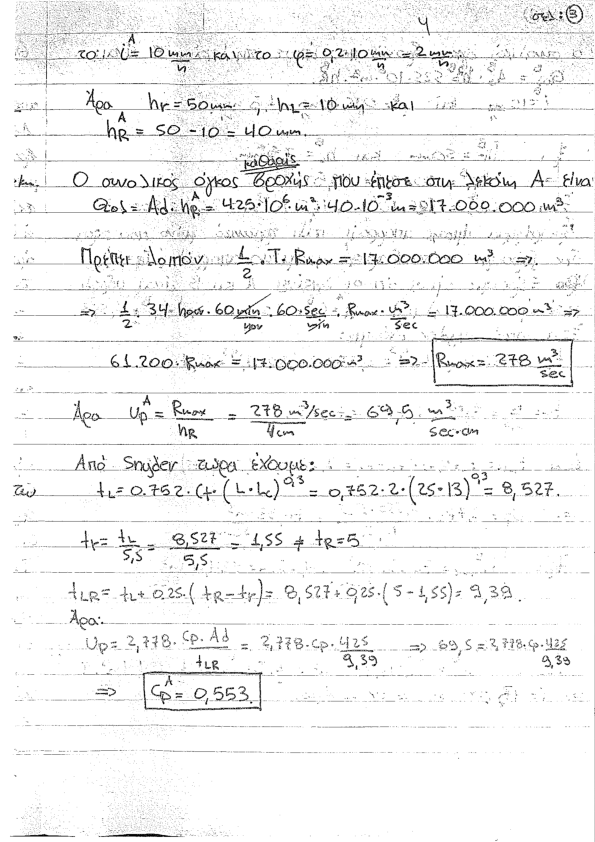 (σελ: 3)
4
το i^A = 10 mm/h και το φ = 0,2·10 mm/h = 2 mm/h
Άρα hr = 50 mm, hL = 10 mm και
hR^A = 50 - 10 = 40 mm.
καθαρής
Ο συνολικός όγκος βροχής που έπεσε στη λεκάνη Α είναι
Qολ = Ad·hR^A = 425·10^6 m²·40·10^-3 m = 17.000.000 m³
Πρέπει λοιπόν 1/2 · T · Rmax = 17.000.000 m³ =>
=> 1/2 · 34 hour · 60 min/hour · 60 sec/min · Rmax · m³/sec = 17.000.000 m³ =>
61.200 · Rmax = 17.000.000 m³ => Rmax = 278 m³/sec
Άρα Up^A = Rmax/hR = 278 m³/sec/4cm = 69,5 m³/sec·cm
Από Snyder τώρα έχουμε:
των tL = 0.752·Ct·(L·Lc)^0,3 = 0,752·2·(25·13)^0,3 = 8,527.
tr = tL/5,5 = 8,527/5,5 = 1,55 ≠ tR = 5
tLR = tL + 0.25·(tR - tr) = 8,527 + 0,25·(5 - 1,55) = 9,39.
Άρα:
Up = 2,778·Cp·Ad/tLR = 2,778·Cp·425/9,39 => 69,5 = 2,778·Cp·425/9,39
=> Cp^A = 0,553.